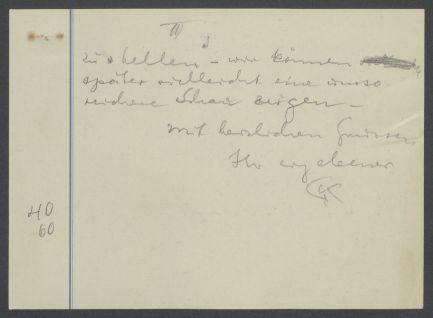 III
zu stellen – wir können
später vielleicht eine umso
reichere Schau zeigen –
Mit herzlichen Grüssen
Ihr ergebener
GK
40
60